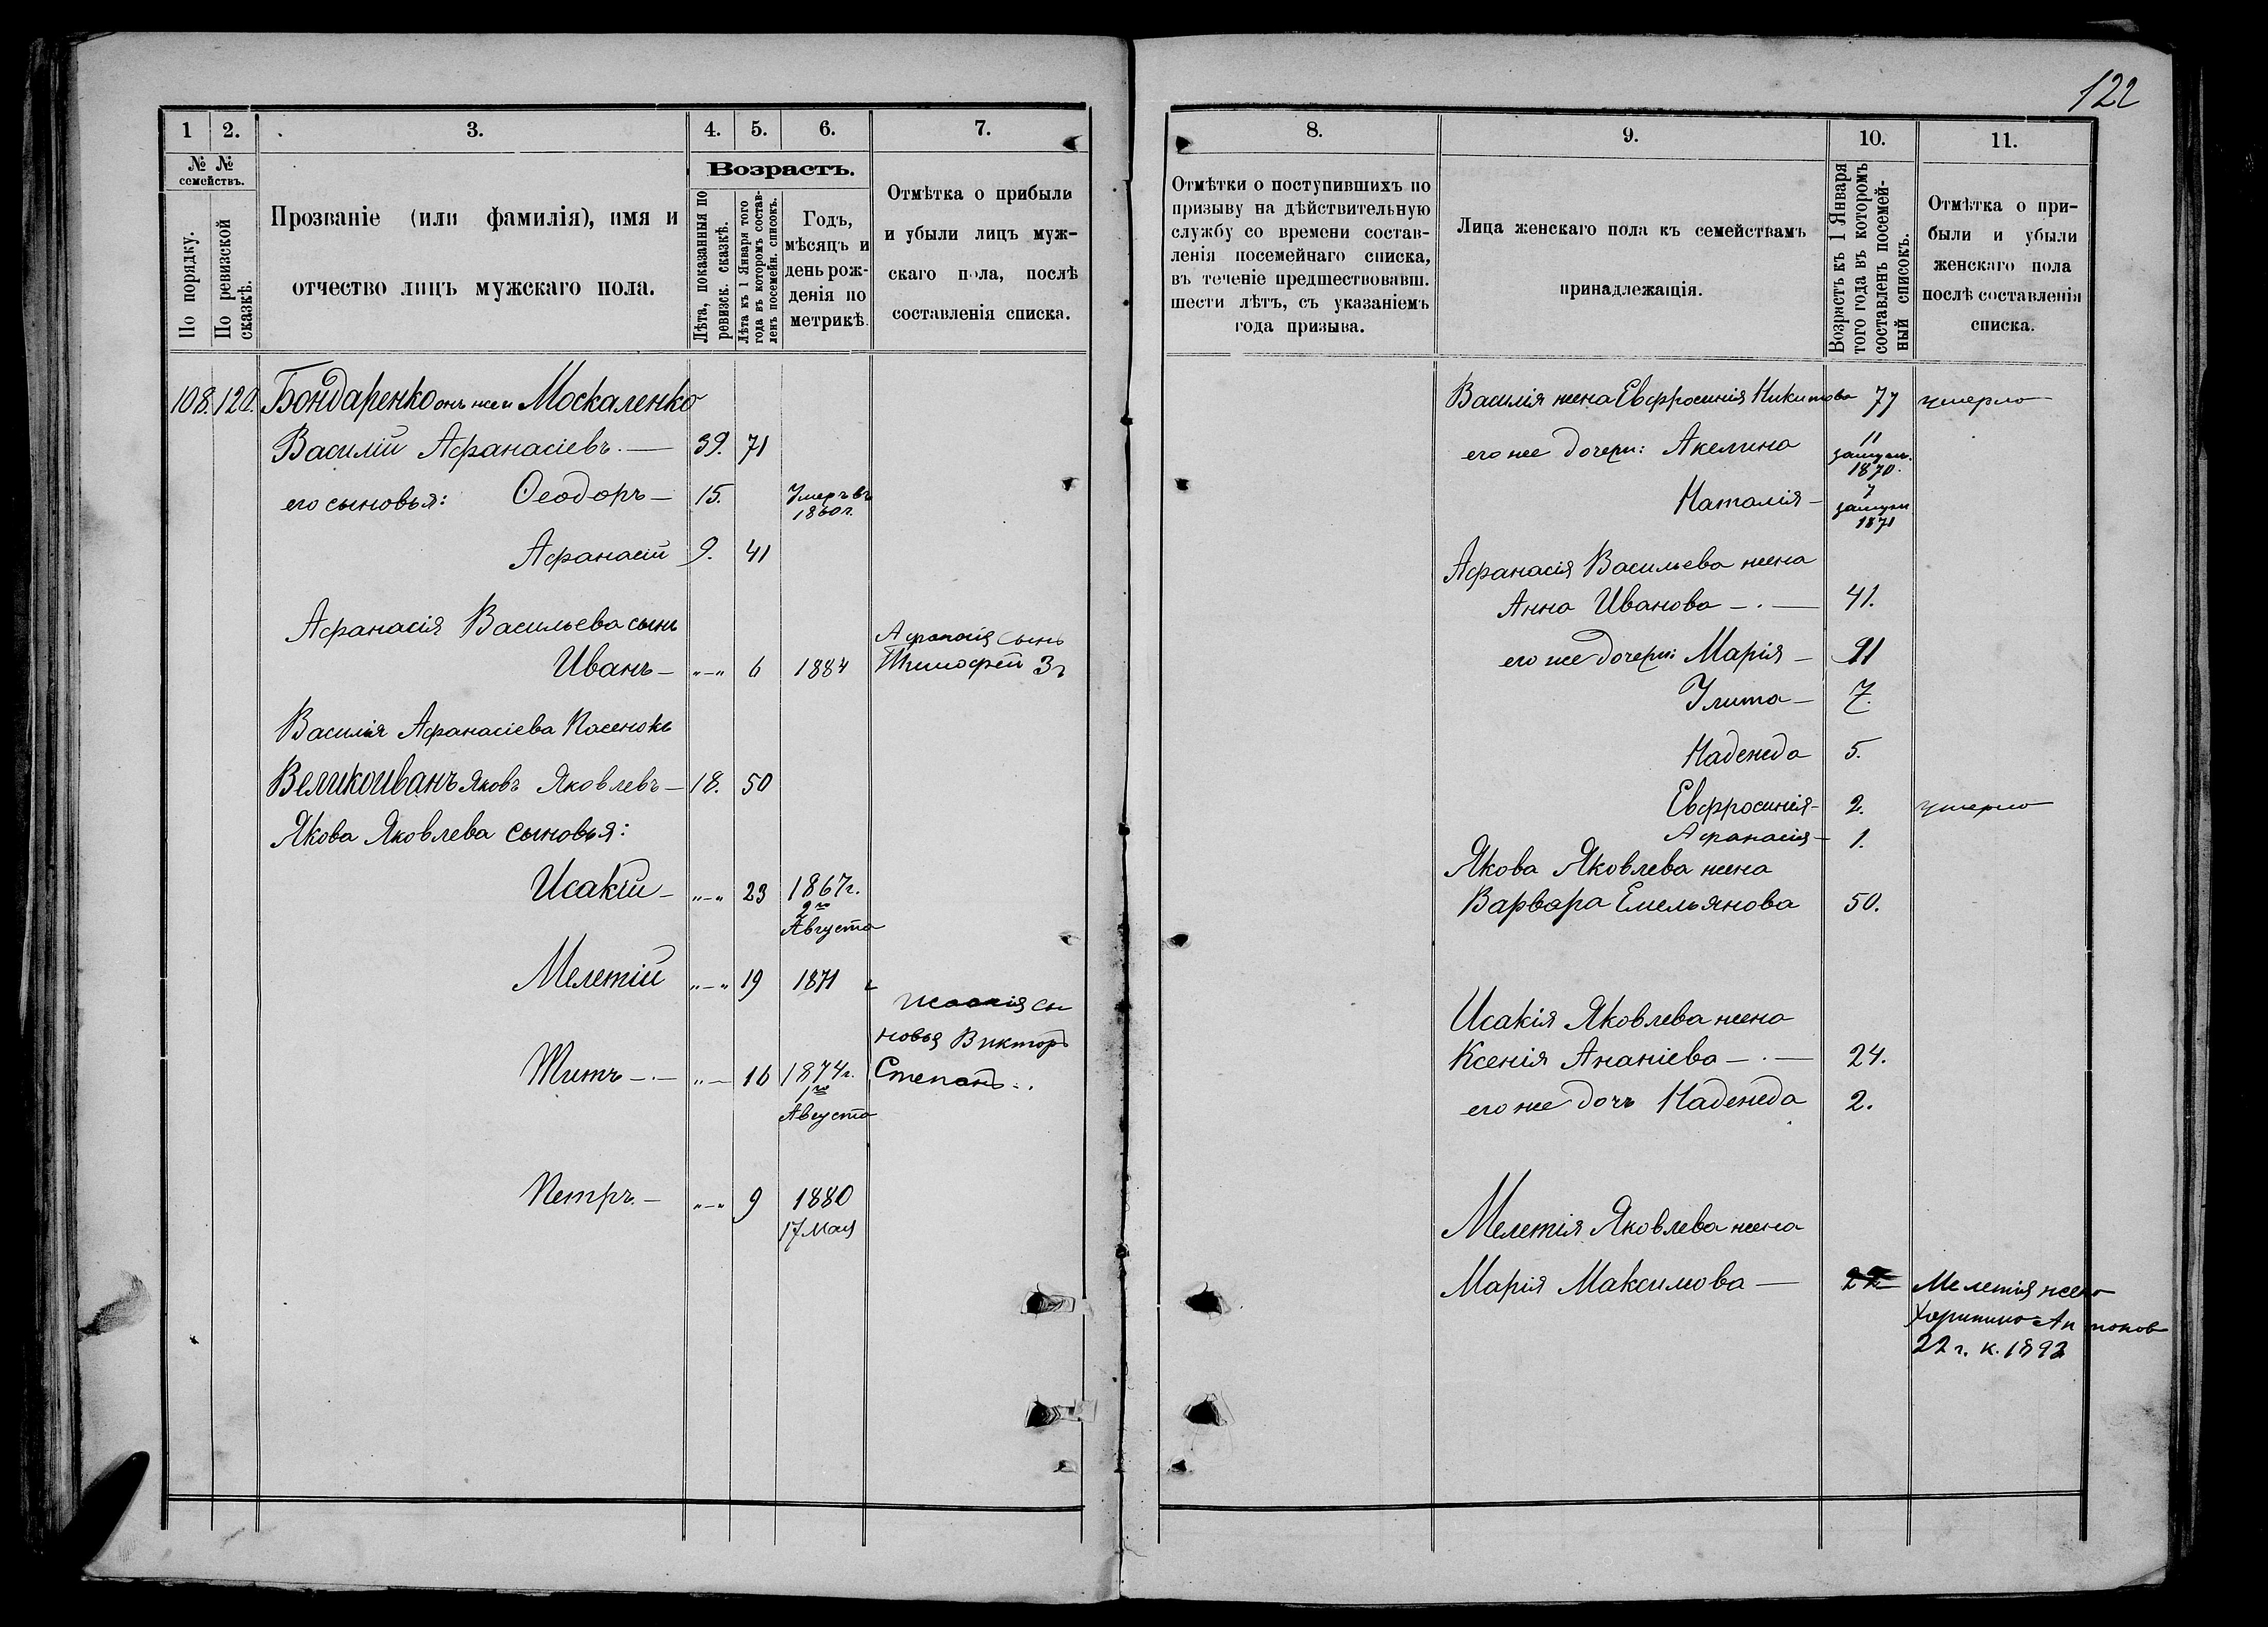 122
1
2.
3.
4.
5.
6.
7.
№ №
семействъ.
По порядку.
По ревизской
сказкѣ.
Прозваніе (или фамилія), имя и
отчество лицъ мужскаго пола.
Возрастъ.
Лѣта, показанныя по
ревизск. сказкѣ.
Лѣта къ 1 Января того
года въ которомъ состав-
ленъ посемейн. списокъ.
Годъ,
мѣсяцъ и
день рож-
денія по
метрикѣ.
Отмѣтка о прибыли
и убыли лицъ муж-
скаго пола, послѣ
составленія списка.
108. 120. Бондаренко онъ же и Москаленко
Василій Афанасіевъ. — 39. 71
его сыновья: Ѳеодоръ — 15. Умеръ въ
1860 г.
Афанасій 9. 41
Афанасія Васильева сынъ
Иванъ — „—„ 6 1884
Афанасія сынъ
Тимофей 3 г
Василія Афанасіева Пасенокъ
Великоиванъ Яковъ Яковлевъ — 18. 50
Якова Яковлева сыновья:
Исакій — „—„ 23 1867 г.
2го
Августа
Мелетій „—„ 19 1871
Исакія сы
новья Викторъ
Степанъ
Титъ —.— „— 16 1874 г.
1го
Августа
Петръ. — „—„ 9 1880
17 Мая
8.
9.
10.
11.
Отмѣтки о поступившихъ по
призыву на дѣйствительную
службу со времени состав-
ленія посемейнаго списка,
въ теченіе предшествовавш.
шести лѣтъ, съ указаніемъ
года призыва.
Лица женскаго пола къ семействамъ
принадлежащія.
Возрастъ къ 1 Января
того года въ которомъ
составленъ посемей-
ный списокъ.
Отмѣтка о при-
были и убыли
женскаго пола
послѣ составленія
списка.
Василія жена Евфросинія Никитова 77 умерла
его же дочери: Акелина 11
замуж.
1870.
Наталія — 7
замуж
1871
Афанасія Васильева жена
Анна Иванова —.— 41.
его же дочери: Марія — 11
Улита — 7.
Надежда 5.
Евфросинія — 2. умерла
Афанасія — 1.
Якова Яковлева жена
Варвара Емельянова 50.
Исакія Яковлева жена
Ксенія Ананіева —.— 24.
его же дочь Надежда 2.
Мелетія Яковлева жена
Марія Максимова — 22
Мелетія жена
Харитина Антонов
22 г. к. 1892